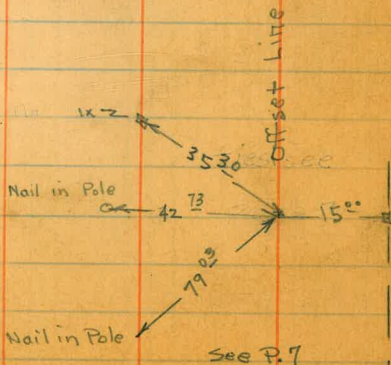 Offset Line
1x2
35 30
Nail in Pole
42 73
15 00
79 09
Nail in Pole
See P.7